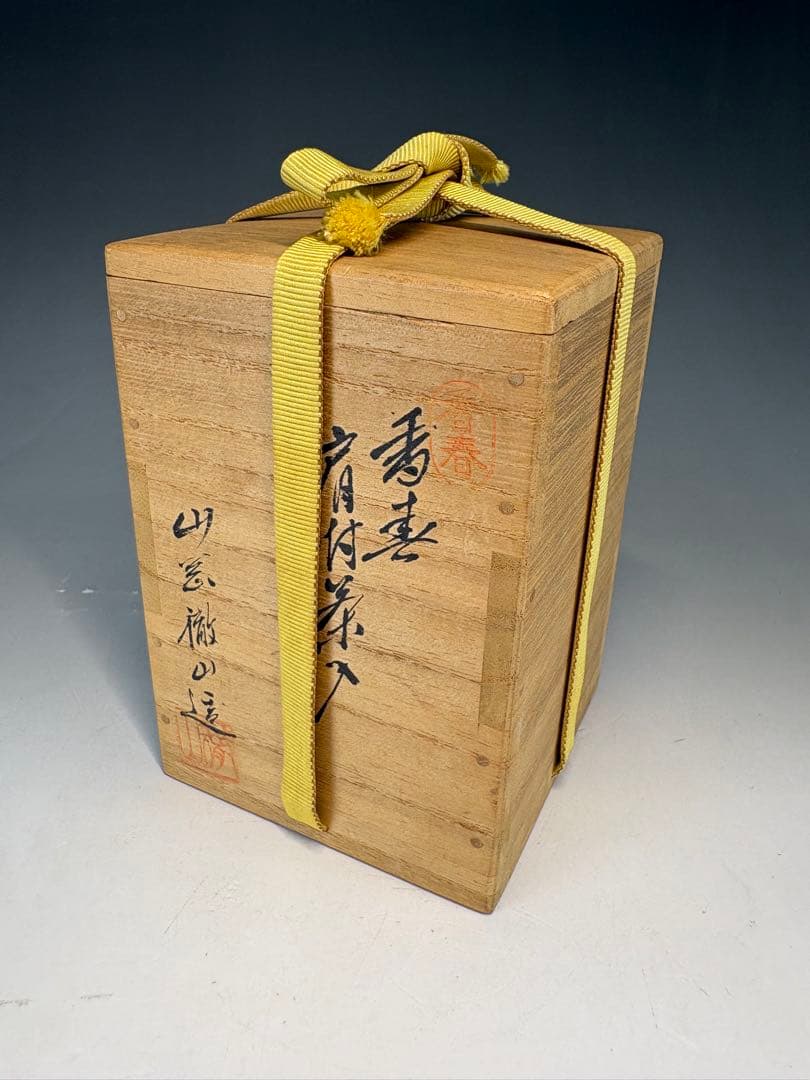 香春
香春
肩付茶入
山岡徹山造